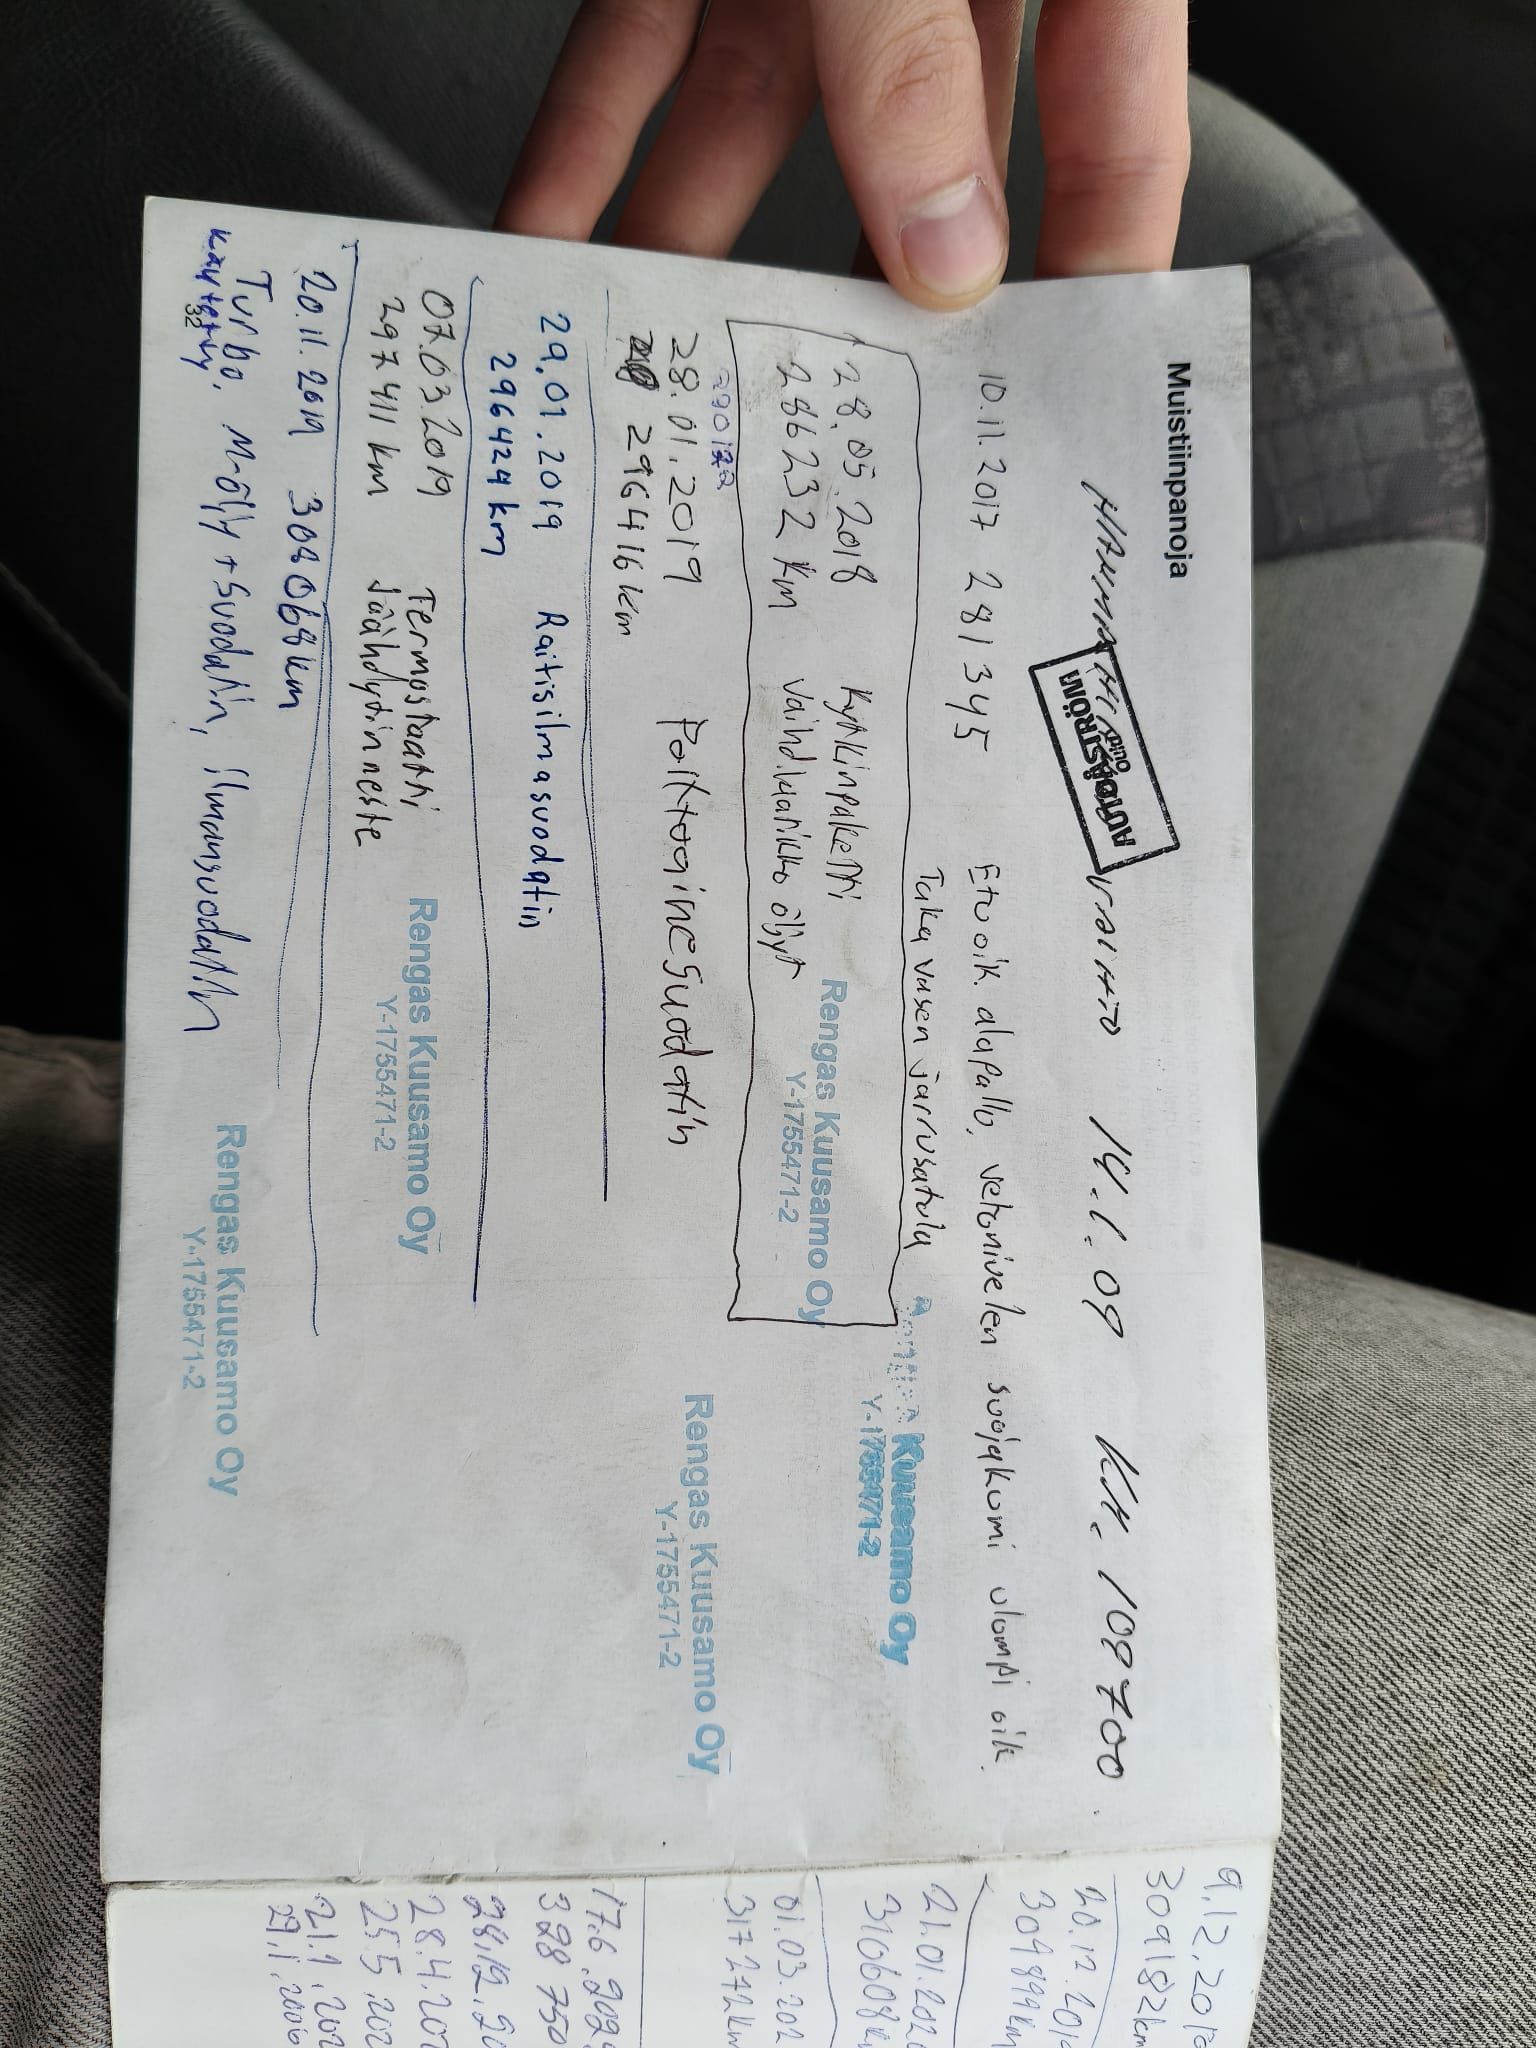 Muistiinpanoja
HAMMASHIHNA VAIHTO 14.1.09 KM. 108700.
AUTOÅSTRÖM
10.11.2017 281345 Etuoik alapallo, vetonivelen suojakumi ulompi oik.
Taka vasen jarrusatula
Kuusamo Oy
Y-1755471-2
28.05.2018 Kytkinpaketti
286232 km vaihdelaatikko öljyt
Rengas Kuusamo Oy
Y-1755471-2
28.01.2019 Polttoainesuodatin
296416 km
Rengas Kuusamo Oy
Y-1755471-2
29.01.2019 Raitisilmasuodatin
296424 km
07.03.2019 Termostaatti
297411 km Jäähdytinneste
Rengas Kuusamo Oy
Y-1755471-2
20.11.2019 309068 km
Turbo, M-öljy + Suodatin, ilmansuodatin
käytetty
Rengas Kuusamo Oy
Y-1755471-2
32
9.12.201
309182 km
20.12.201
309899 km
21.01.202
310608 k
01.03.202
317272 km
17.6.202
328750
28.12.20
28.4.202
25.5.202
21.1.202